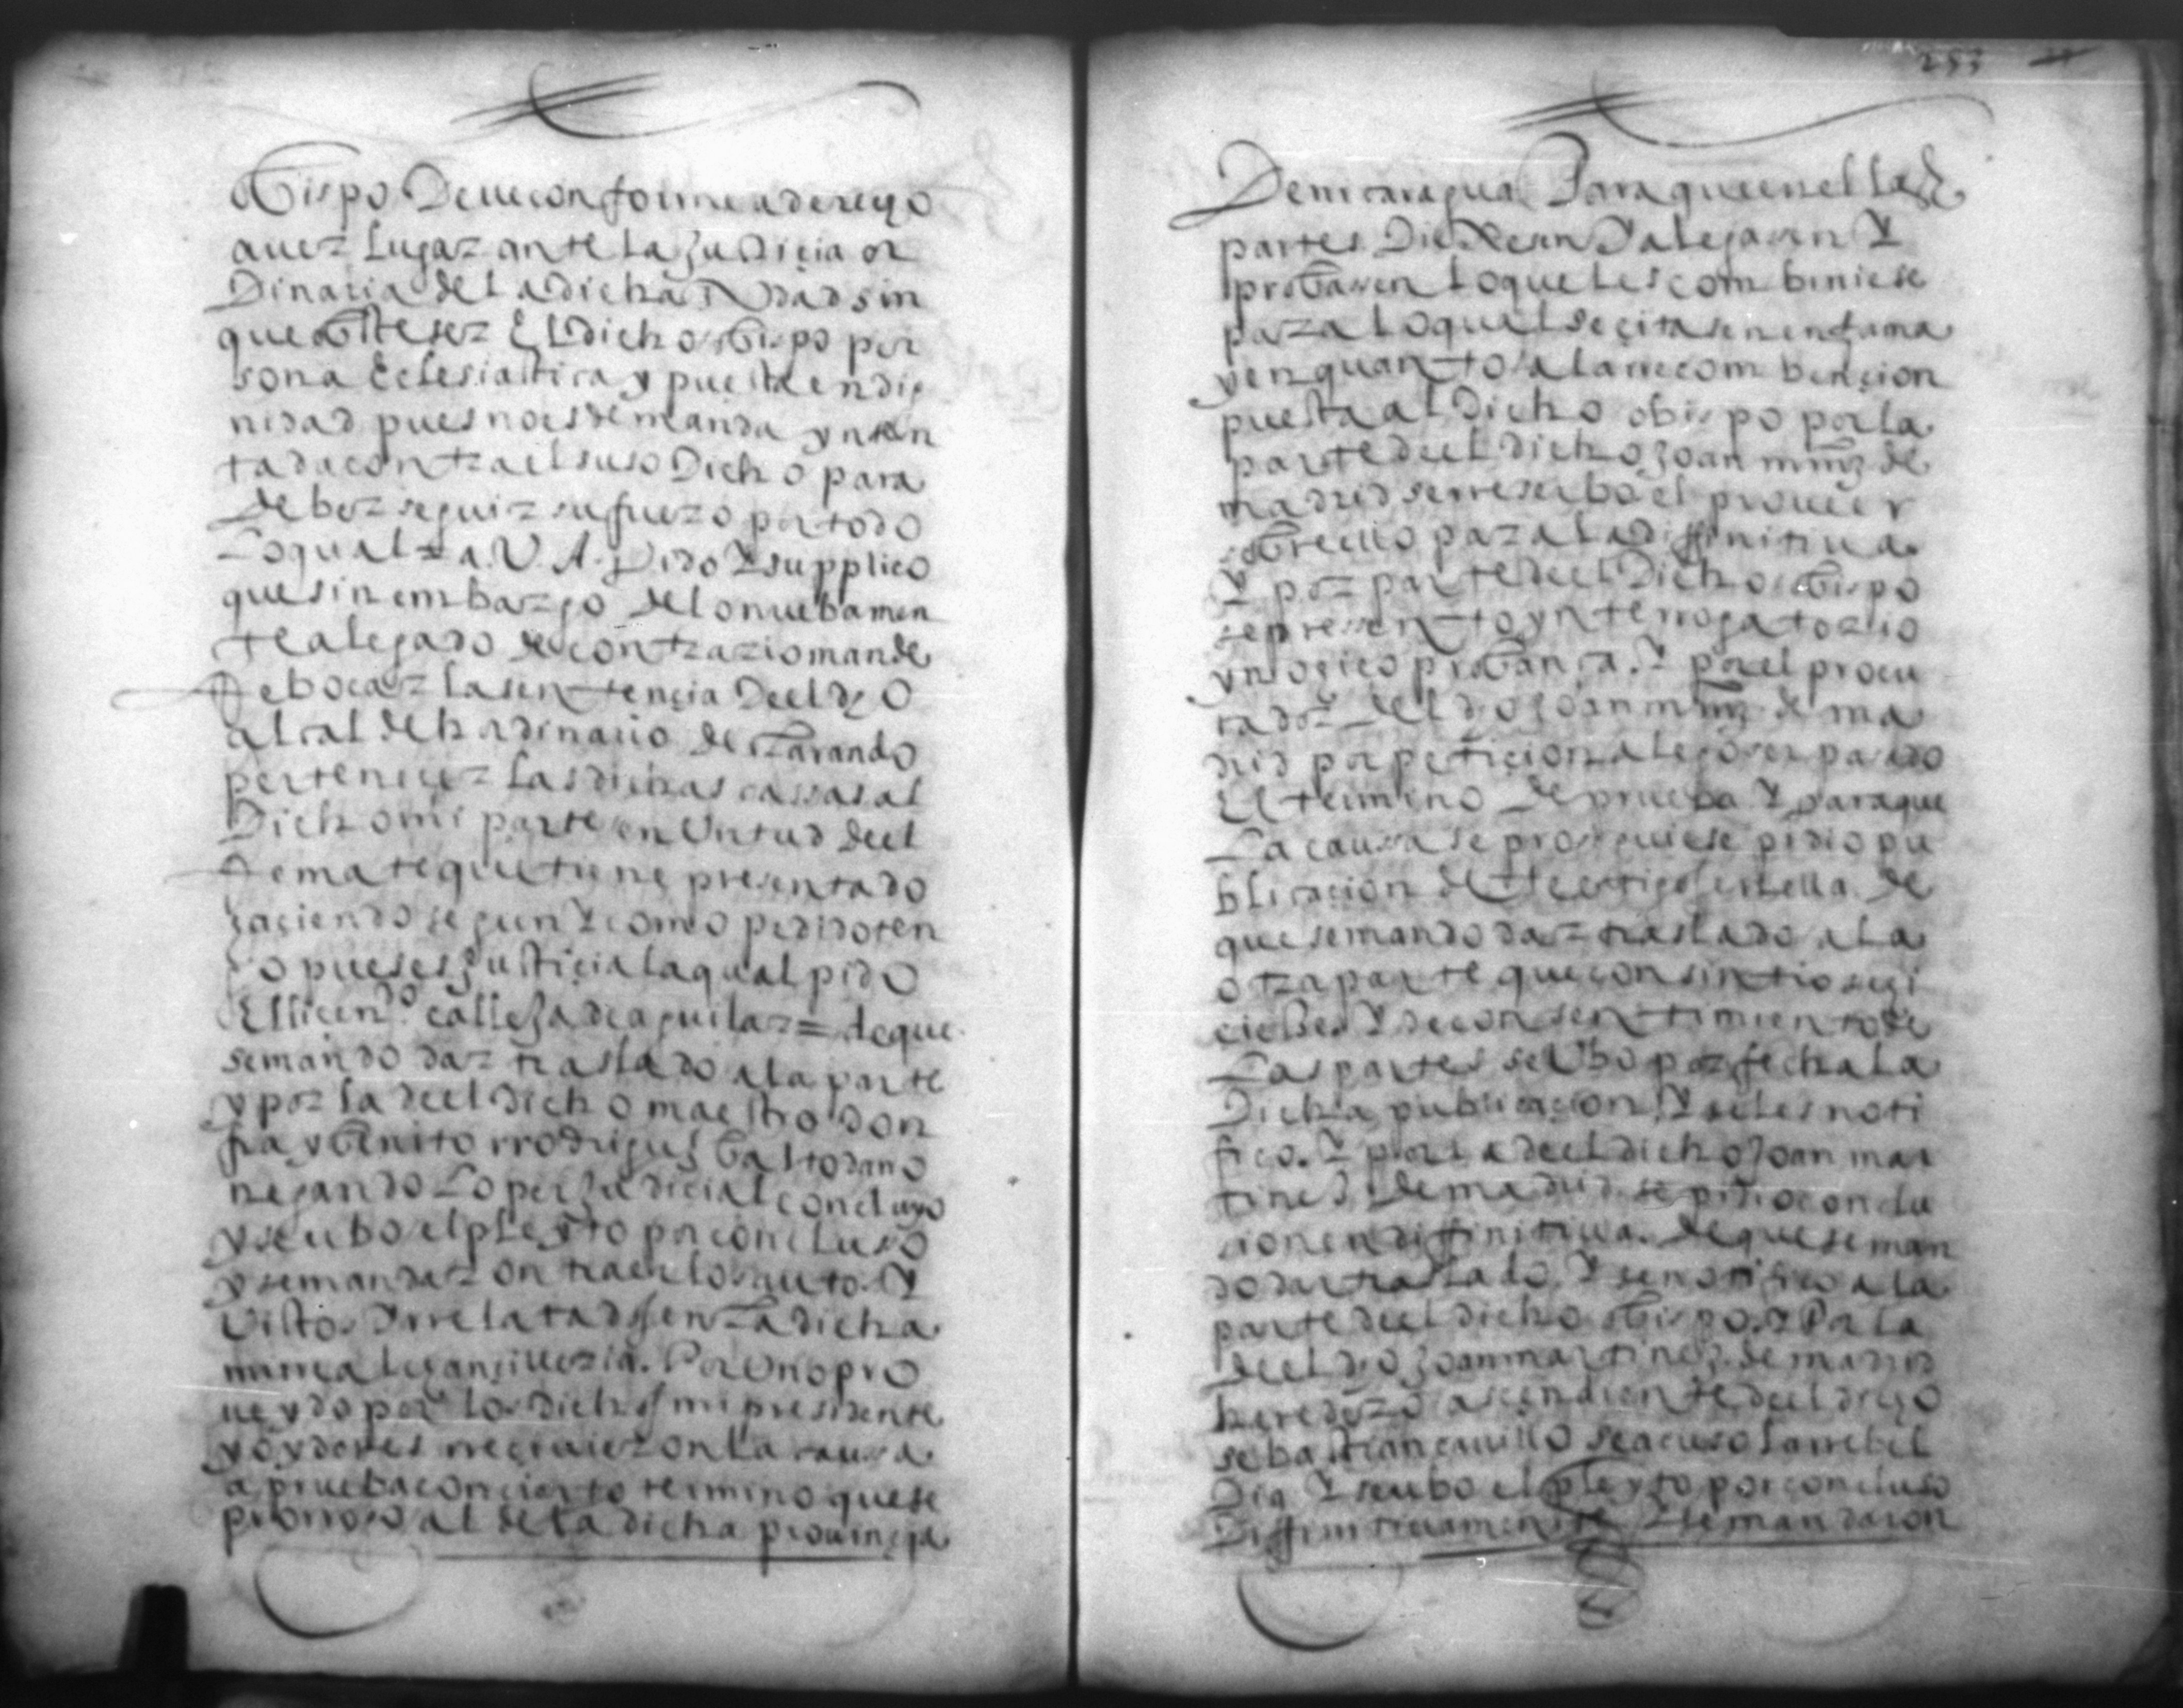 obispo Deue conforme a derecho
auer lugar ante la Justicia or
Dinaria de la dicha ciudad sin
que obste ser El dicho obispo per
sona Eclesiastica y puesta en dig
nidad pues no es demanda ynten
tada contra el suso Dicho para
deber seguir su fuero por todo
Lo qual = a. V. A. Pido Y supplico
que sin embargo de lo nuebamen
te alegado de contrario mande
Rebocar la sentencia Deel dho
alcalde hordinario declarando
pertenecer las dichas cassas al
Dicho mi parte en Virtud deel
Remate que tiene presentado
haciendo segun Y como pedido ten
go pues es Justicia la qual pido
El licendo. calleja de aguilar = de que
se mando dar traslado a la parte
y por la deel dicho maestro don
fray benito rrodrigues baltodano
negando Lo perjudicial concluyo
y se ubo el pleyto por concluso
y se mandaron traer los autos. Y
Vistos Y rrelatados en La dicha
mi rreal chancilleria. Por Uno pro
ueydo por los dichos mi presidente
y oydores rreciuieron la caussa
a prueba con cierto termino que se
prorrogo al de la dicha prouincia
253
De nicaragua Para que en el las
partes Dixesen Y alegasen Y
probassen lo que les combiniese
para lo qual se citasen en forma
y en quanto a la rrecombencion
puesta al dicho obispo por la
parte deel dicho Joan mrnz de
madrid se rreserbo el proueer
sobre ello para la diffinitiua
Y por parte deel Dicho obispo
se pressento ynterrogatorio
y no hico probanca. Y por el procu
rador del dho Joan mrnz de ma
drid por peticion alego ser pasado
El termino de prueba Y para que
La caussa se prosiguiese pidio pu
blicacion de testigos en ella. de
que se mando dar traslado a la
otra parte que consintio se hi
ciese Y de consentimiento de
Las partes se Ubo por fecha La
Dicha publicacion Y se les noti
fico. Y por la deel dicho Joan mar
tines de madrid se pidio conclu
cion en diffinitiua. de que se man
do dar traslado. Y se notifico a la
parte deel dicho obispo. Y Por la
deel dho Joan martines de madrid
heredero ascendiente deel dicho
sebastian caluillo se acuso la rrebel
Dia Y se ubo el pleyto por concluso
Diffinitiuamente Y se mandaron